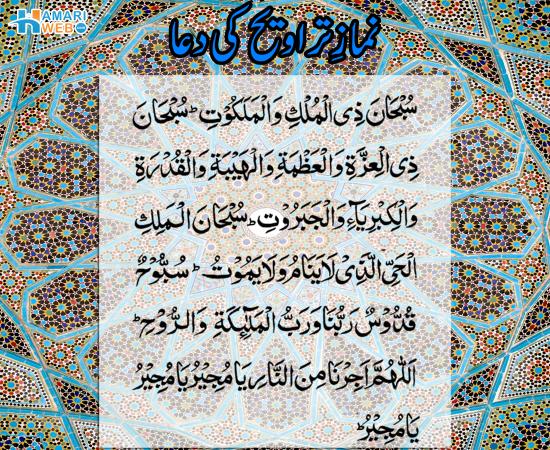 HAMARI
WEB
نمازِ تراویح کی دعا
سُبْحَانَ ذِی الْمُلْکِ وَالْمَلَکُوْتِ ؕ سُبْحَانَ
ذِی الْعِزَّةِ وَالْعَظْمَةِ وَالْهَیْبَةِ وَالْقُدْرَةِ
وَالْکِبْرِیَآءِ وَالْجَبَرُوْتِ ؕ سُبْحَانَ الْمَلِکِ
الْحَیِّ الَّذِیْ لَایَنَامُ وَلَایَمُوْتُ ؕ سُبُّوْحٌ
قُدُّوْسٌ رَبُّنَا وَرَبُّ الْمَلٰٓئِکَةِ وَالرُّوْحِ ؕ
اَللّٰهُمَّ اَجِرْنَا مِنَ النَّارِ یَا مُجِیْرُ یَا مُجِیْرُ
یَا مُجِیْرُ ؕ